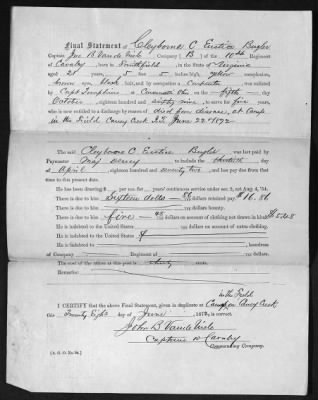 Final Statement of Cleyborne C Eustice Bugler
Captain Jno B Van de Wiele's Company (B) of the 10th Regiment
of Cavalry, born in Smithfield, in the State of Virginia
aged 21 years, 5 feet 5 inches high, yellow complexion,
brown eyes, black hair, and by occupation a Carpenter was enlisted
by Capt Tompkins at Cincinnati Ohio on the fifth day
October, eighteen hundred and sixty nine to serve five years,
who is now entitled to a discharge by reason of died from disease, at Camp
in the Field Caney Creek I.T. June 22nd 1872
The said Cleyborne C Eustice Bugler was last paid by
Paymaster Maj to include the thirtieth day
of April, eighteen hundred seventy two, and has pay due from that
time to present date.
He has been drawing $ per mo. for years' continuous service under sec. 2, act Aug. 4, '54.
There is due to him Sixteen dolls 86/100 dollars retained pay. $16.86
There is due to him dollars bounty.
There is due to him five 48/100 dollars on account of clothing not drawn in kind.
He is indebted to the United States dollars on account of extra clothing.
He is indebted to the United States
He is indebted to, laundress
of Company, Regiment of, dollars.
The cost of the ration at this post is cents.
Remarks:
in the Field
I CERTIFY that the above Final Statement, given in duplicate at Camp on Caney Creek
this Twenty Eight day of June, 1872, is correct.
John B Van de Wiele
Captain 10 Cavalry
Commanding Company.